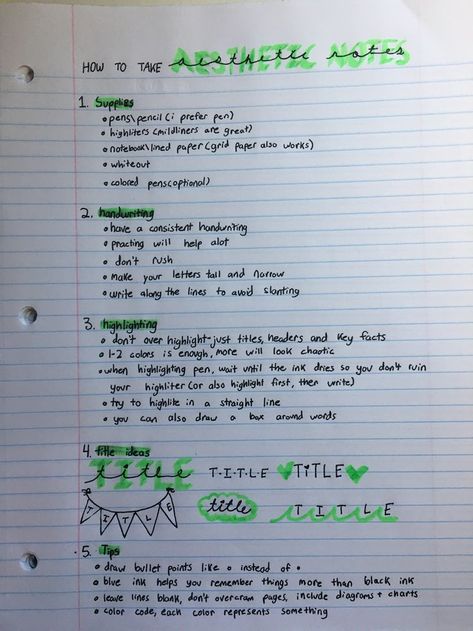 HOW TO TAKE AESTHETIC NOTES aesthetic notes
1. Supplies
o pens\pencil (i prefer pen)
o highliters (mildliners are great)
o notebook\lined paper (grid paper also works)
o whiteout
o colored pens (optional)
2. handwriting
o have a consistent handwriting
o practing will help alot
o don't rush
o make your letters tall and narrow
o write along the lines to avoid slanting
3. highlighting
o don't over highlight-just titles, headers and key facts
o 1-2 colors is enough, more will look chaotic
o when highlighting pen, wait until the ink dries so you don't ruin
your highliter (or also highlight first, then write)
o try to highlite in a straight line
o you can also draw a box around words
4. title ideas
TITLE title T·I·T·L·E TiTLE
TITLE title T I T L E
5. Tips
o draw bullet points like o instead of •
o blue ink helps you remember things more than black ink
o leave lines blank, don't overcram pages, include diagrams + charts
o color code, each color represents something